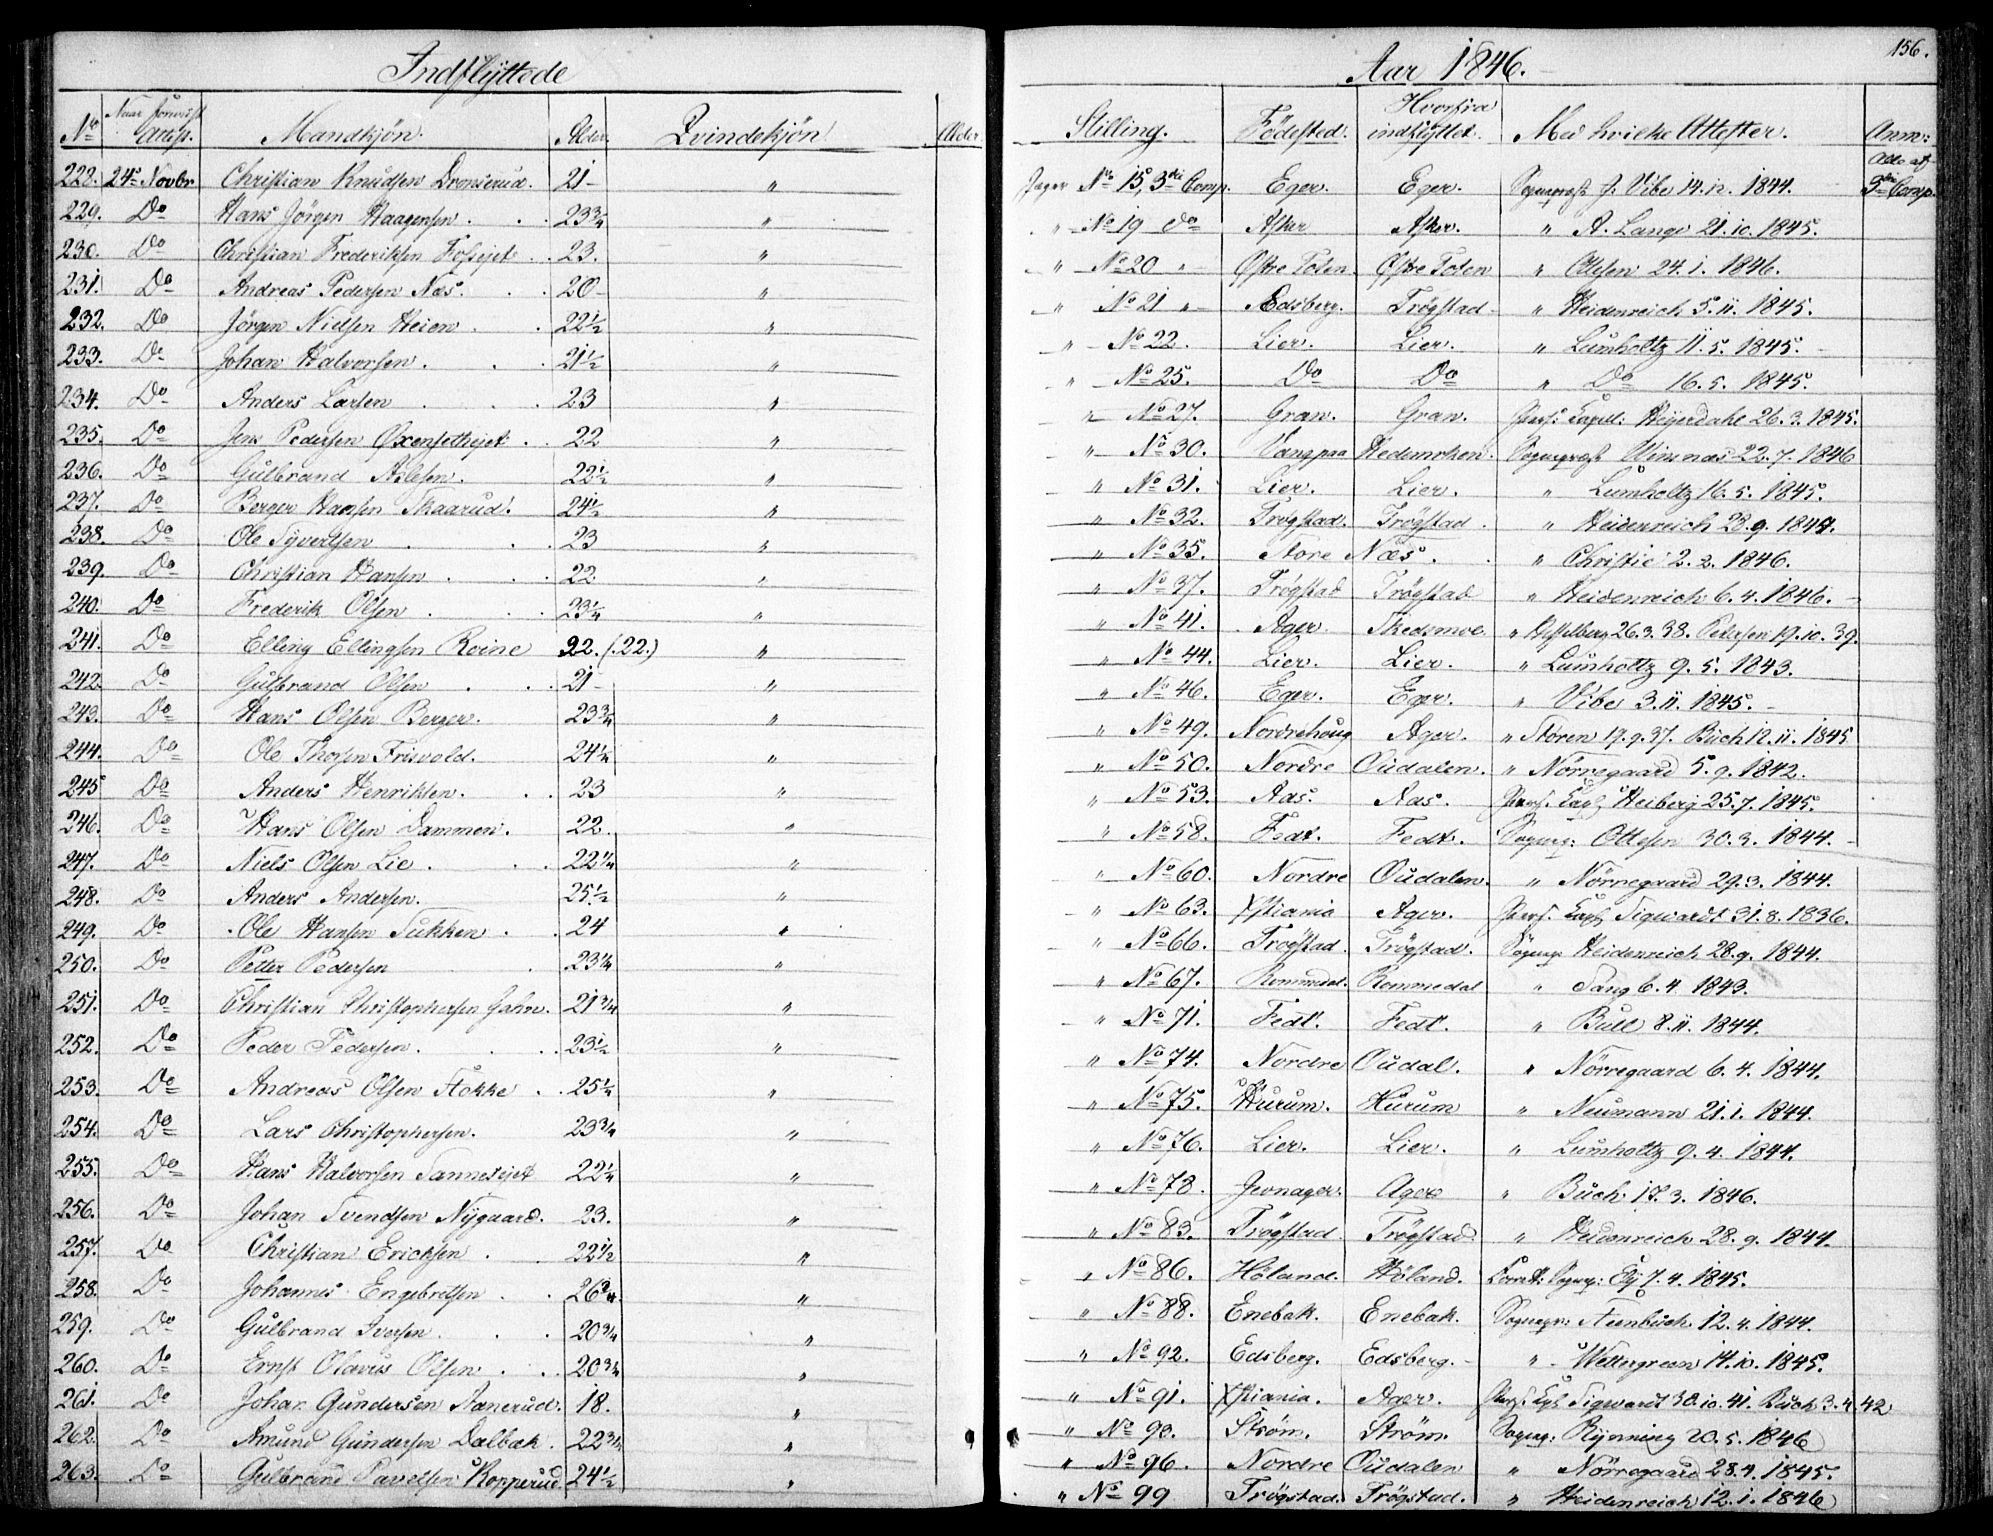 Indflyttede
No Naar forevist Attest. Mandkjön. Alder. Qvindekjön Alder
228. 24de Novbr Christian Knudsen Dronserud. 21 "
229. Do Hans Jörgen Haagensen. 23 3/4 "
230. Do Christian Frederiksen 23. "
231. Do Andreas Pedersen Næs. 20 "
232. Do Jörgen Nielsen Heien. 22 1/2 "
233. Do Johan Halvorsen. 21 1/2 "
234. Do Anders Larsen 23 "
235. Do Jens Pedersen 22 "
236. Do Gulbrand Aslesen. 22 1/2 "
237. Do Berger Hansen Skaarud. 24 1/2 "
238. Do Ole Syvertsen 23 "
239. Do Christian Hansen 22. "
240. Do Frederik Olsen 23 1/4 "
241. Do Elling Ellingsen Roine 22. (:22.) "
242. Do Gulbrand Olsen 21 "
243. Do Hans Olsen Berger. 23 3/4 "
244. Do Ole Thorsen Frisvold. 24 1/4 "
245 Do Anders Henriksen. 23 "
246. Do Hans Olsen Dammen. 22. "
247. Do Niels Olsen Lie. 22 1/4 "
248. Do Anders Andersen. 25 1/2 "
249. Do Ole Hansen Tukken 24 "
250. Do Petter Pedersen 23 1/4 "
251. Do Christian Christophersen Jahn. 21 3/4 "
252. Do Peder Pedersen. 23 1/2 "
253. Do Andreas Olsen Stokke 25 1/2 "
254. Do Lars Christophersen. 23 3/4 "
255. Do Hans Halvorsen 22 1/4 "
256. Do Johan Svendsen Nygaard. 23. "
257. Do Christian Ericksen 22 1/2 "
258. Do Johannes Engebretsen 26 3/4. "
259. Do Gulbrand Iversen. 20 3/4 "
260. Do Ernst Olavus Olsen 20 3/4 "
261. Do Johan Gundersen Aanerud. 18. "
262. Do Amund Gundersen Dalbak. 22 3/4 "
263. Do Gulbrand Pavelsen Kopperud 24 1/2 "
156.
Aar 1846.
Stilling. Födested. Hvorfra indflyttet. Med hvilke Attester. Anm:
Jæger No 15, 3die Comp. Eger. Eger. Sognepræst J. Vibe 14.12. 1844. Alle af 3die Comp.
" No 19 do Asker Asker. " A. Lange 21.10. 1845.
" No 20 " Östre Toten. Östre Toten " Ottesen 24.1. 1846.
" No 21 " Edsberg. Trögstad " Heidenreich 5.11. 1845.
" No 22. Lier. Lier. " Lumholtz 11.5. 1845.
" No 25. Do Do " Do 16.5. 1845.
" No 27. Gran. Gran. Pers: Capel: Heyerdahl 26.3. 1845.
" No 30. Vang paa Hedemarken. Sognepræst Winsnæs 22.7. 1846
" No 31. Lier. Lier. " Lumholtz 16.5. 1845.
" No 32. Trögstad. Trögstad. " Heidenreich 28.9. 1844.
" No 35. Store Næs. " Christie 2.2. 1846.
" No 37. Trögstad Trögstad " Heidenreich 6.4. 1846.
" No 41. Ager. Skedsmoe. " Hesselberg 26.3.38. Petersen 19.10.39.
" No 44. Lier. Lier. " Lumholtz 9.5. 1843.
" No 46. Eger. Eger. " Vibe 3.11. 1845.
" No 49. Nordrehoug Ager. " Stören 19.9.37. Buch 12.11. 1845
" No 50. Nordre Oudalen. " Nörregaard 5.9. 1842.
" No 53. Aas. Aas. Pers: Cap: Heiberg 25.7. 1845.
" No 58. Fedt. Fedt. Sognep: Ottesen 30.3. 1844.
" No 60. Nordre Oudalen. " Nörregaard 29.3. 1844.
" No 63. Xstiania Ager. Pers: Cap: Sigwardt 31.8. 1836.
" No 66. Trögstad. Trögstad. Sognep: Heidenreich 28.9. 1844.
" No 67. Rommedal. Rommedal " Tang 6.4 1843.
" No 71. Fedt. Fedt. " Bull 8.11. 1844.
" No 74. Nordre Oudal. " Nörregaard 6.4. 1844.
" No 75. Hurum. Hurum " Neumann 21.1. 1844.
" No 76. Lier. Lier. " Lumholtz 9.4. 1844.
" No 78. Jevnager. Ager " Buch 17.3. 1846.
" No 83. Trögstad Trögstad. " Heidenreich 28.9. 1844.
" No 86. Höland. Höland. Const: Sognep: Ely 7.4. 1845.
" No 88. Enebak. Enebak. Sognepr: Steenbuch 12.4. 1844.
" No 92. Edsberg. Edsberg. " Wettergreen 14.10. 1845.
" No 91. Xstiania. Ager. Pers: Cap: Sigwardt 30.10.41. Buch 3.4.42
" No 90. Ström. Ström. Sognep: Rynning 20.5. 1846
" No 96. Nordre Oudalen " Nörregaard 28.4. 1845.
" No 99 Trögstad. Trögstad. " Heidenreich 12.1. 1846